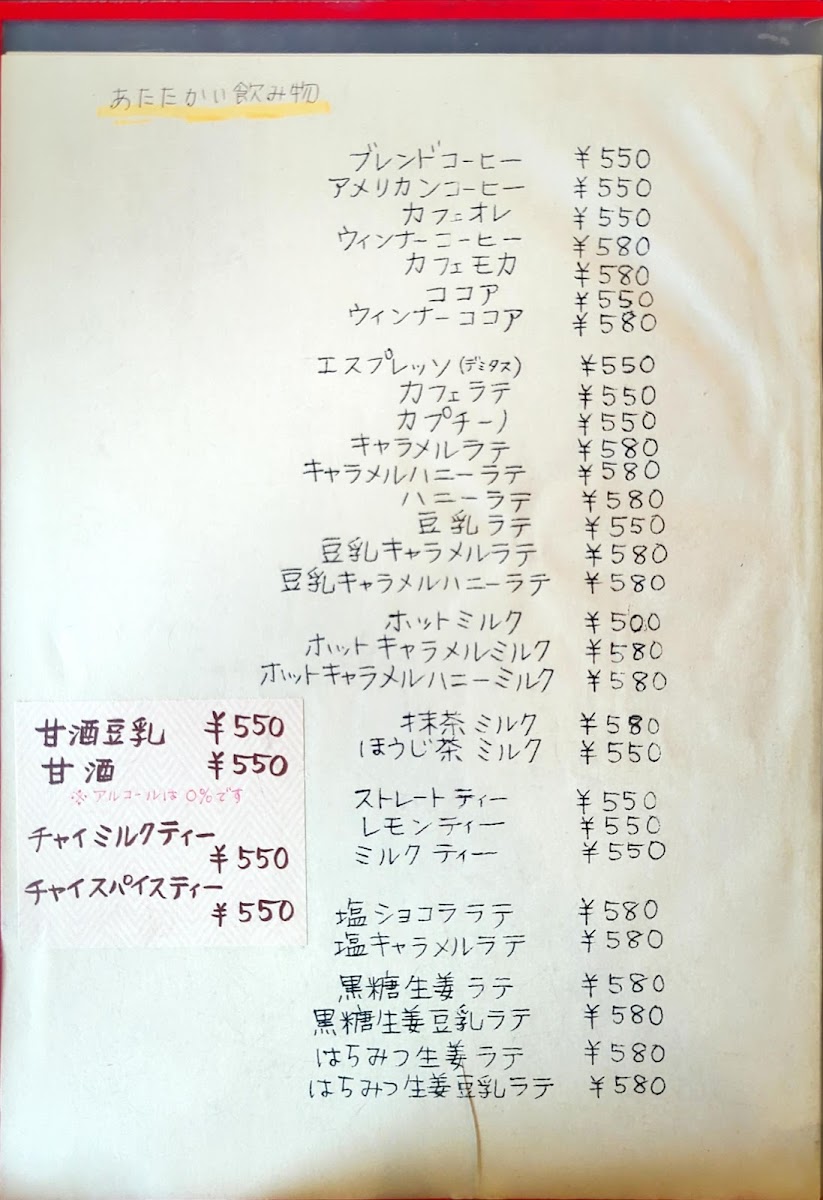 あたたかい飲み物
ブレンドコーヒー ￥550
アメリカンコーヒー ￥550
カフェオレ ￥550
ウィンナーコーヒー ￥580
カフェモカ ￥580
ココア ￥550
ウィンナーココア ￥580
エスプレッソ(デミタス) ￥550
カフェラテ ￥550
カプチーノ ￥550
キャラメルラテ ￥580
キャラメルハニーラテ ￥580
ハニーラテ ￥580
豆乳ラテ ￥550
豆乳キャラメルラテ ￥580
豆乳キャラメルハニーラテ ￥580
ホットミルク ￥500
ホットキャラメルミルク ￥580
ホットキャラメルハニーミルク ￥580
抹茶ミルク ￥580
ほうじ茶ミルク ￥550
ストレートティー ￥550
レモンティー ￥550
ミルクティー ￥550
塩ショコララテ ￥580
塩キャラメルラテ ￥580
黒糖生姜ラテ ￥580
黒糖生姜豆乳ラテ ￥580
はちみつ生姜ラテ ￥580
はちみつ生姜豆乳ラテ ￥580
甘酒豆乳 ￥550
甘酒 ￥550
※アルコールは0%です
チャイミルクティー
￥550
チャイスパイスティー
￥550